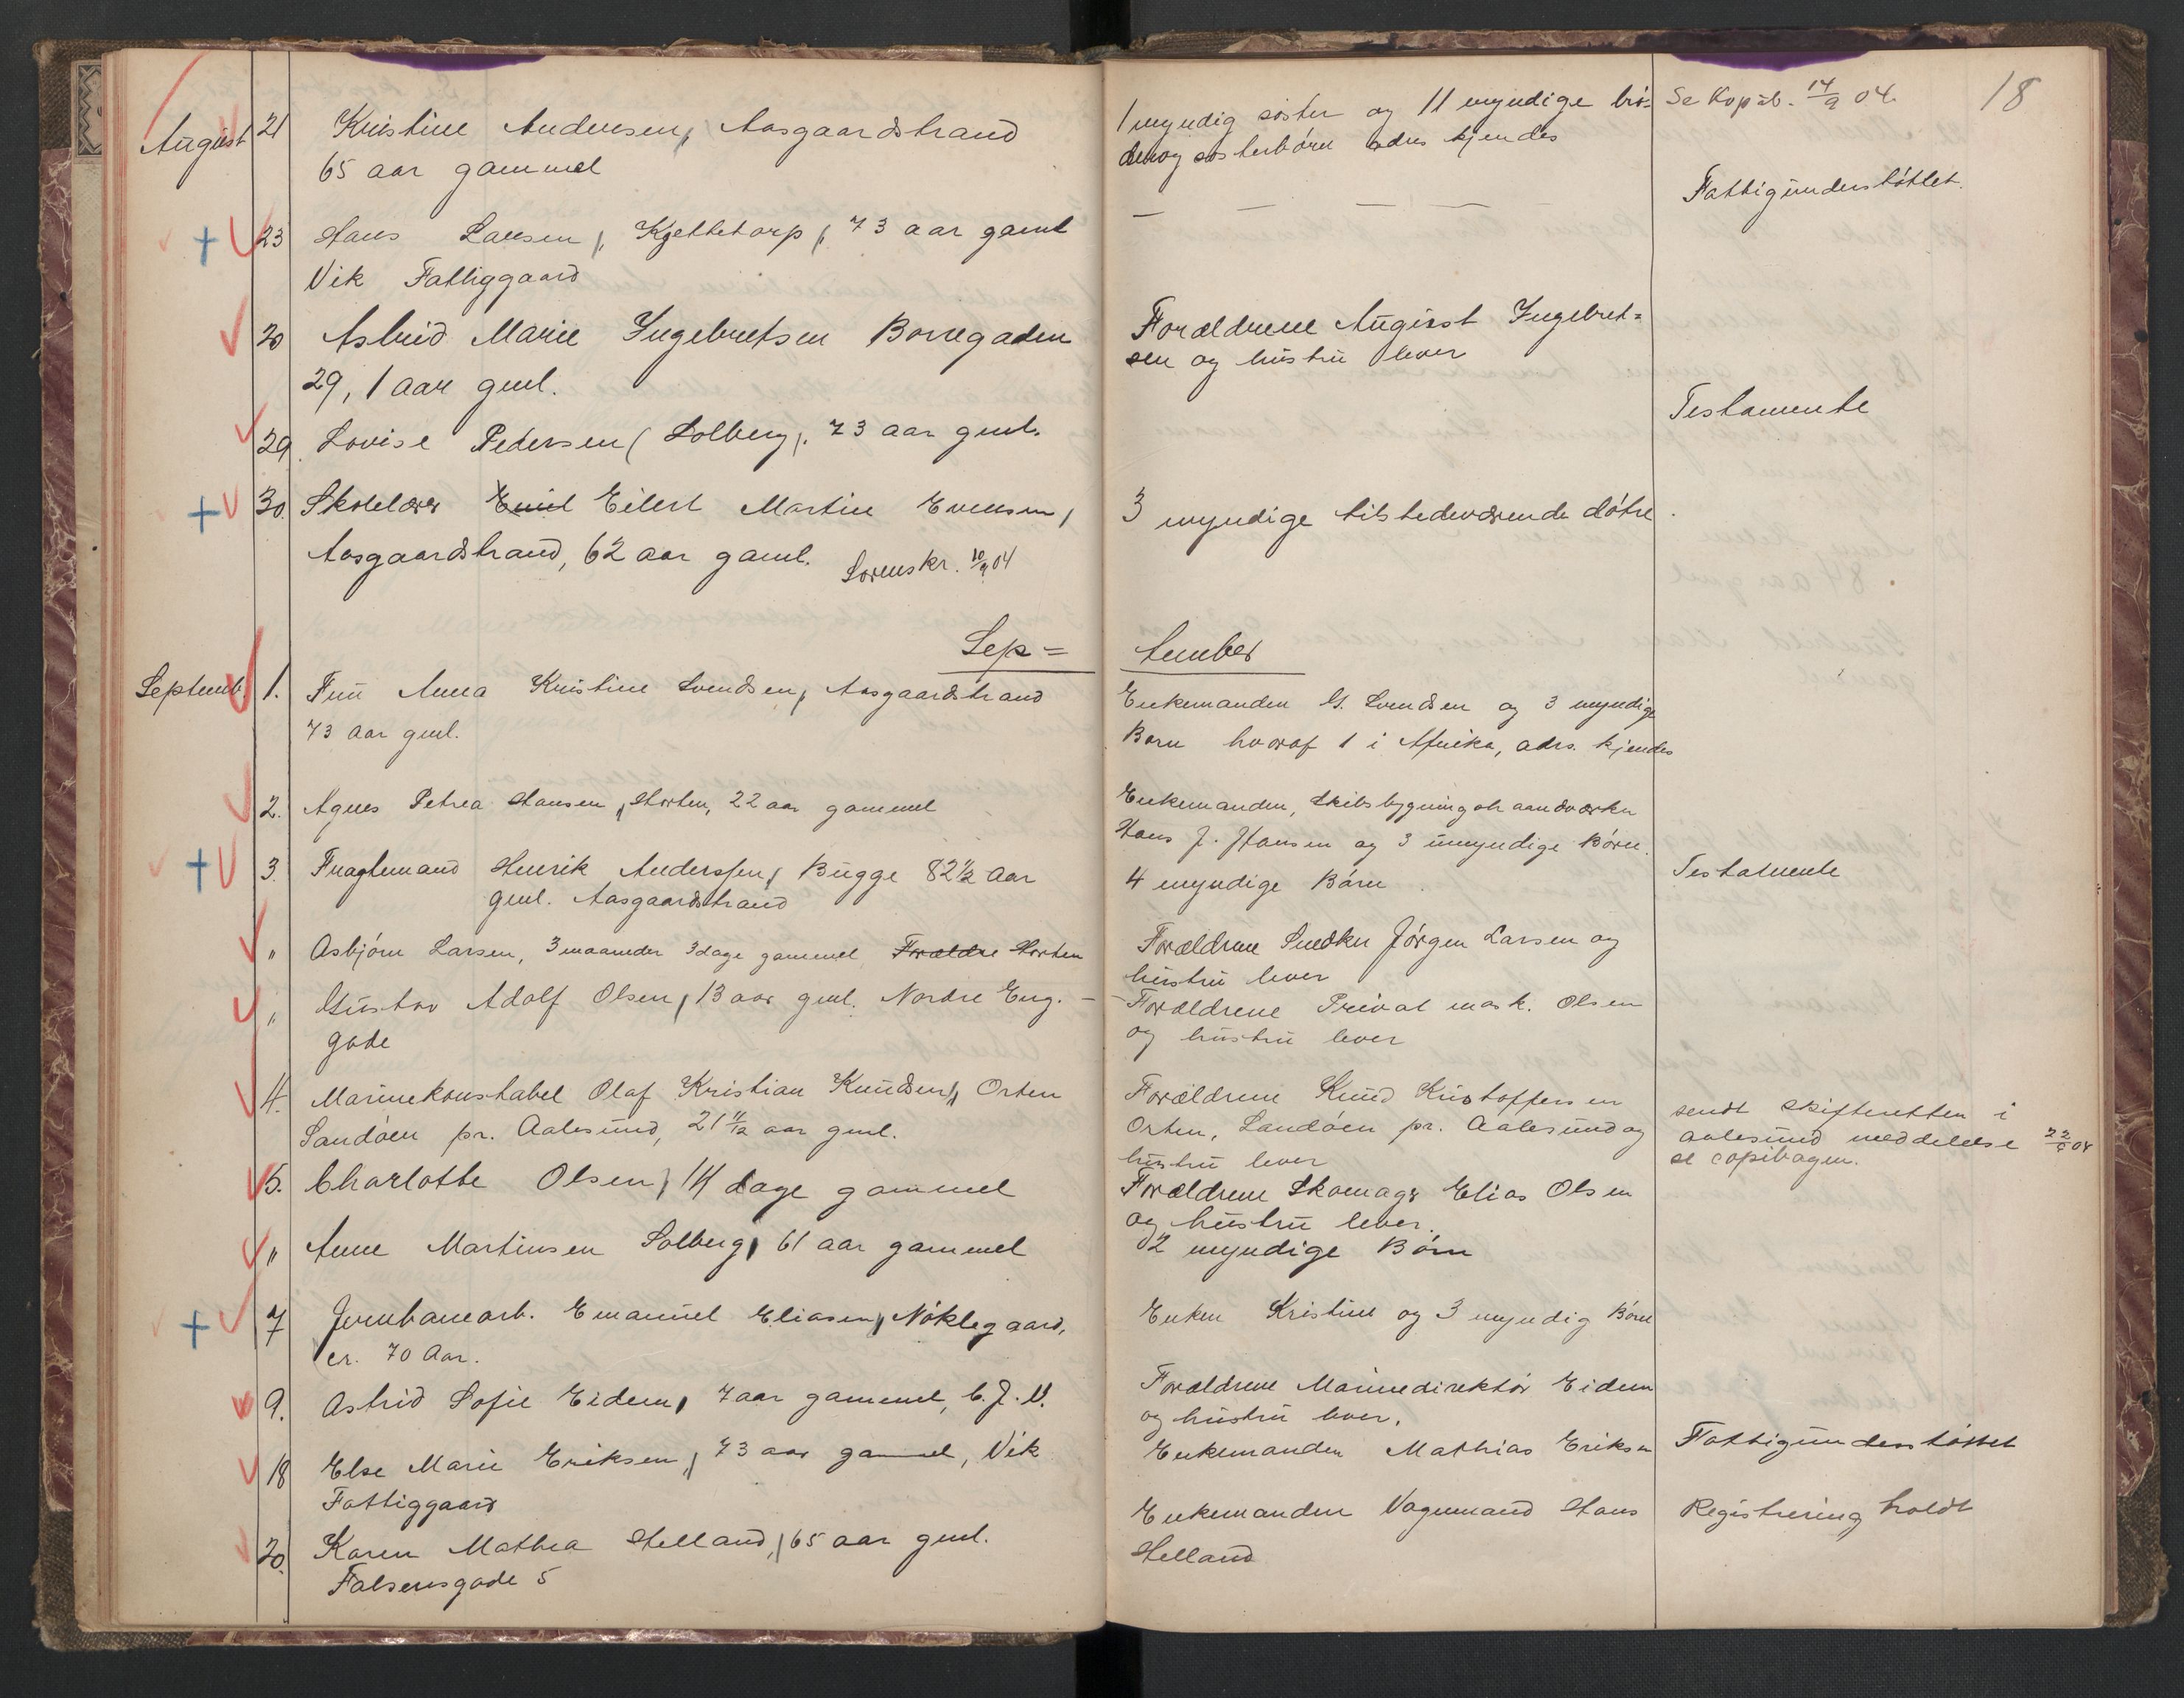 18
August 21 Kristine Andersen, Aasgaardstrand
65 aar gammel
1 myndig søster og 11 myndige brø-
dre og søsterbørn adrs kjendes
Se Kopib. 14/9 04.
23 Hans Larsen, Kjettetorp, 73 aar gaml
Vik Fattiggaard
— — — — —
Fattigunderstøttet.
20 Astrid Marie Ingebretsen Borregaden
29, 1 aar gml.
Forældrene August Ingebret=
sen og hustru lever
29 Lovise Pedersen (Solberg). 73 aar gml.
Testamente
30. Skolelærer Emil Eilert Martin Evensen,
Aasgaardstrand, 62 aar gaml. Sorenskr. 10/9 04
3 myndige tilstedeværende døtre.
Sep=
tember
Septemb. 1. Fru Anna Kristine Svendsen, Aasgaardstrand
73 aar gml.
Enkemanden G. Svendsen og 3 myndige
Børn hvoraf 1 i Afrika, adrs. kjendes
2. Agnes Petrea Hansen, Horten, 22 aar gammel
Enkemanden, Skibsbygningshaandværker
Hans J. Hansen og 3 umyndige Børn.
3. Fragtemand Henrik Anderssen, Bugge 82½ Aar
gml. Aasgaardstrand
4 myndige Børn.
Testamente
" Asbjørn Larsen, 3 maaneder 3 dage gammel Forældre Horten
Forældrene Snedker Jørgen Larsen og
hustru lever
" Gustav Adolf Olsen, 13 aar gml. Nordre Eng.-
gade
Forældrene Privat mask. Olsen
og hustru lever
4. Marinekonstabel Olaf Kristian Knudsen, Orten
Sandøen pr. Aalesund, 21 11/12 aar gml.
Forældrene Knud Kristoffersen
Orten, Sandøen pr. Aalesund og
hustru lever
sendt skifteretten i
Aalesund meddelelse 22/9 04
se copibogen.
5. Charlotte Olsen, 14 dage gammel
Forældrene Skomagr Elias Olsen
og hustru lever.
" Anne Martinsen Solberg, 61 aar gammel
2 myndige Børn
7 Jernbanearb. Emanuel Eliasen, Nøklegaard,
cr. 70 Aar.
Enken Kristine og 3 myndig Børn
9. Astrid Sofie Eidem, 7 aar gammel, C. J. V.
Forældrene Marinedirektør Eidem
og hustru lever.
18 Else Marie Eriksen, 73 aar gammel, Vik
Fattiggaard
Enkemanden Mathias Eriksen
Fattigunderstøttet
20. Karen Mathea Helland, 65 aar gml.
Falsensgade 5
Enkemanden Vognmand Hans
Helland
Registrering holdt